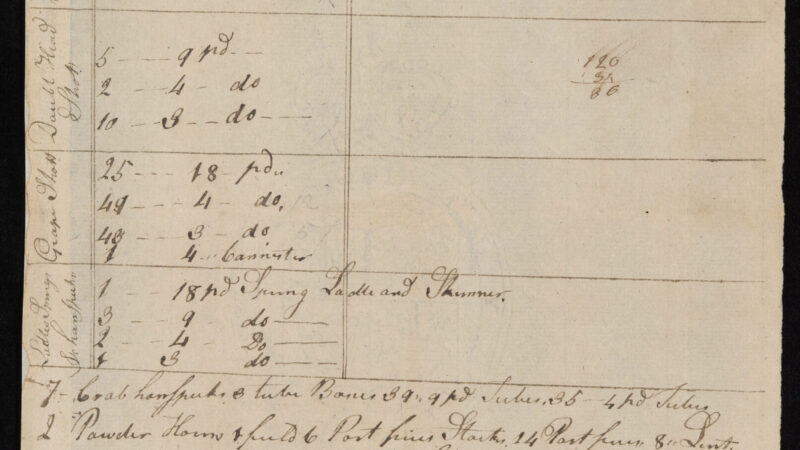 Doubl Head Shott
5 - - - 9 pd - -
2 - - 4 - do
10 - - 3 - - do - - -
120
36
Grape Shott
25 - - - 18 - pd,,
49 - - - 4 - do,
48 - - - 3 - do
1 4 ,, Cannister
Ladles Spungs
& hanspiks
1 - - - 18 pd Spung Ladle and Skimner.
3 - - - 9 do ——
2 - - - 4 - Do ——
1 3 do ——
7 - Crab hanspiks, 3 tube Boxes 39 ,, 9 pd Tubes, 35 - 4 pd Tubes
2 Powder Horns 1 field 6 Port fires Stocks, 14 Port fires 8 ,, Lint,